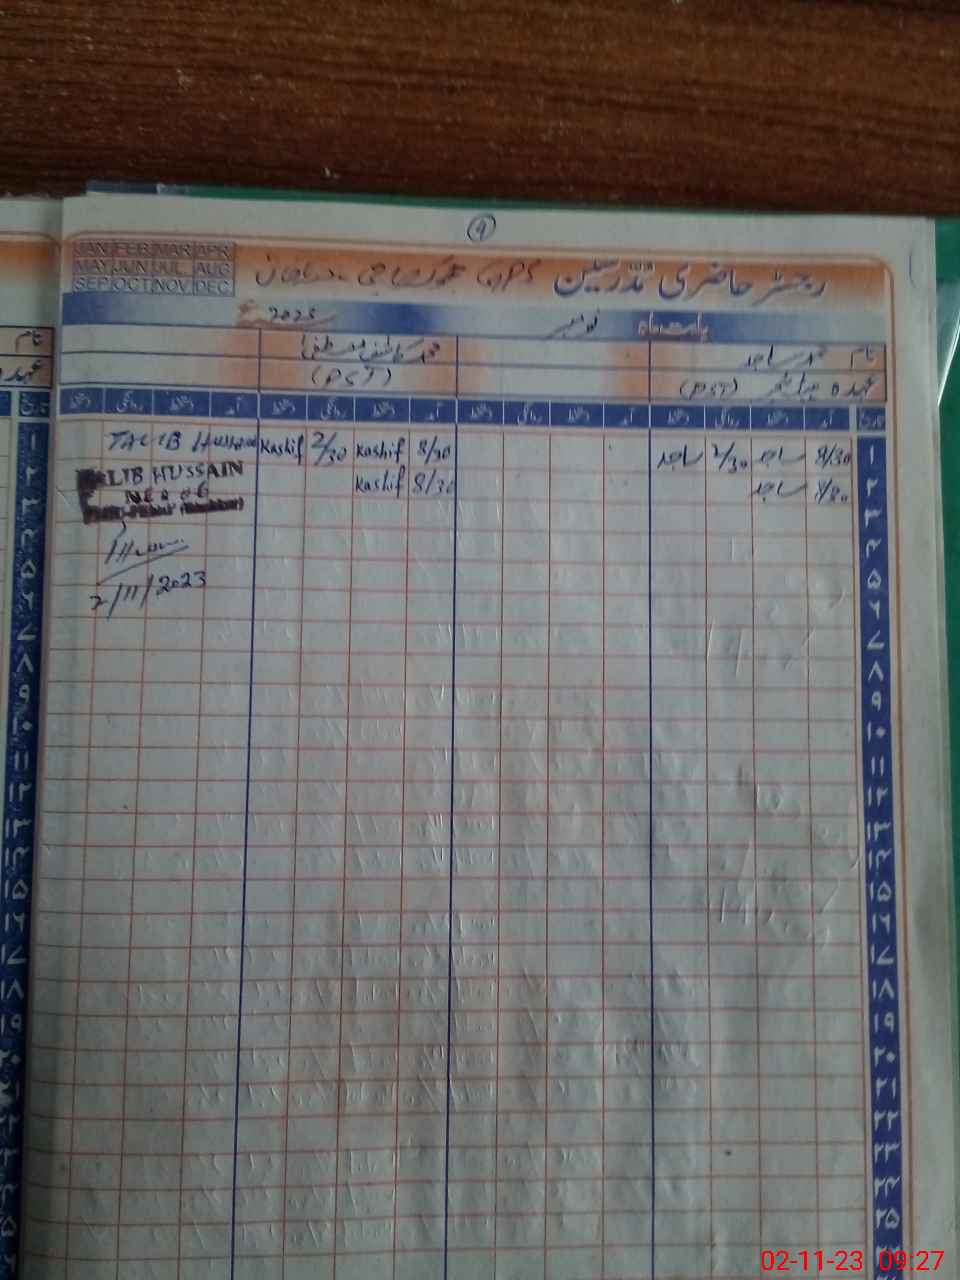 9
JAN FEB MAR APR
MAY JUN JUL AUG
SEP OCT NOV DEC
رجسٹر حاضری مدرسین GPS
بابت ماہ نومبر 2023ء
نام محمد ساجد
محمد کاشف مصطفیٰ
نام
عہدہ (PST)
(PST)
عہدہ
تاریخ آمد دستخط روانگی دستخط آمد دستخط روانگی دستخط آمد دستخط روانگی دستخط آمد دستخط روانگی دستخط تاریخ
۱ 8/30 ساجد 2/30 ساجد 8/30 Kashif 2/30 Kashif TALIB Hussain ۱
۲ 8/30 ساجد 8/30 Kashif ۲
LIB HUSSAIN
2/11/2023
۳
۴
۵
۶
۷
۸
۹
۱۰
۱۱
۱۲
۱۳
۱۴
۱۵
۱۶
۱۷
۱۸
۱۹
۲۰
۲۱
۲۲
۲۳
۲۴
۲۵
02-11-23 09:27